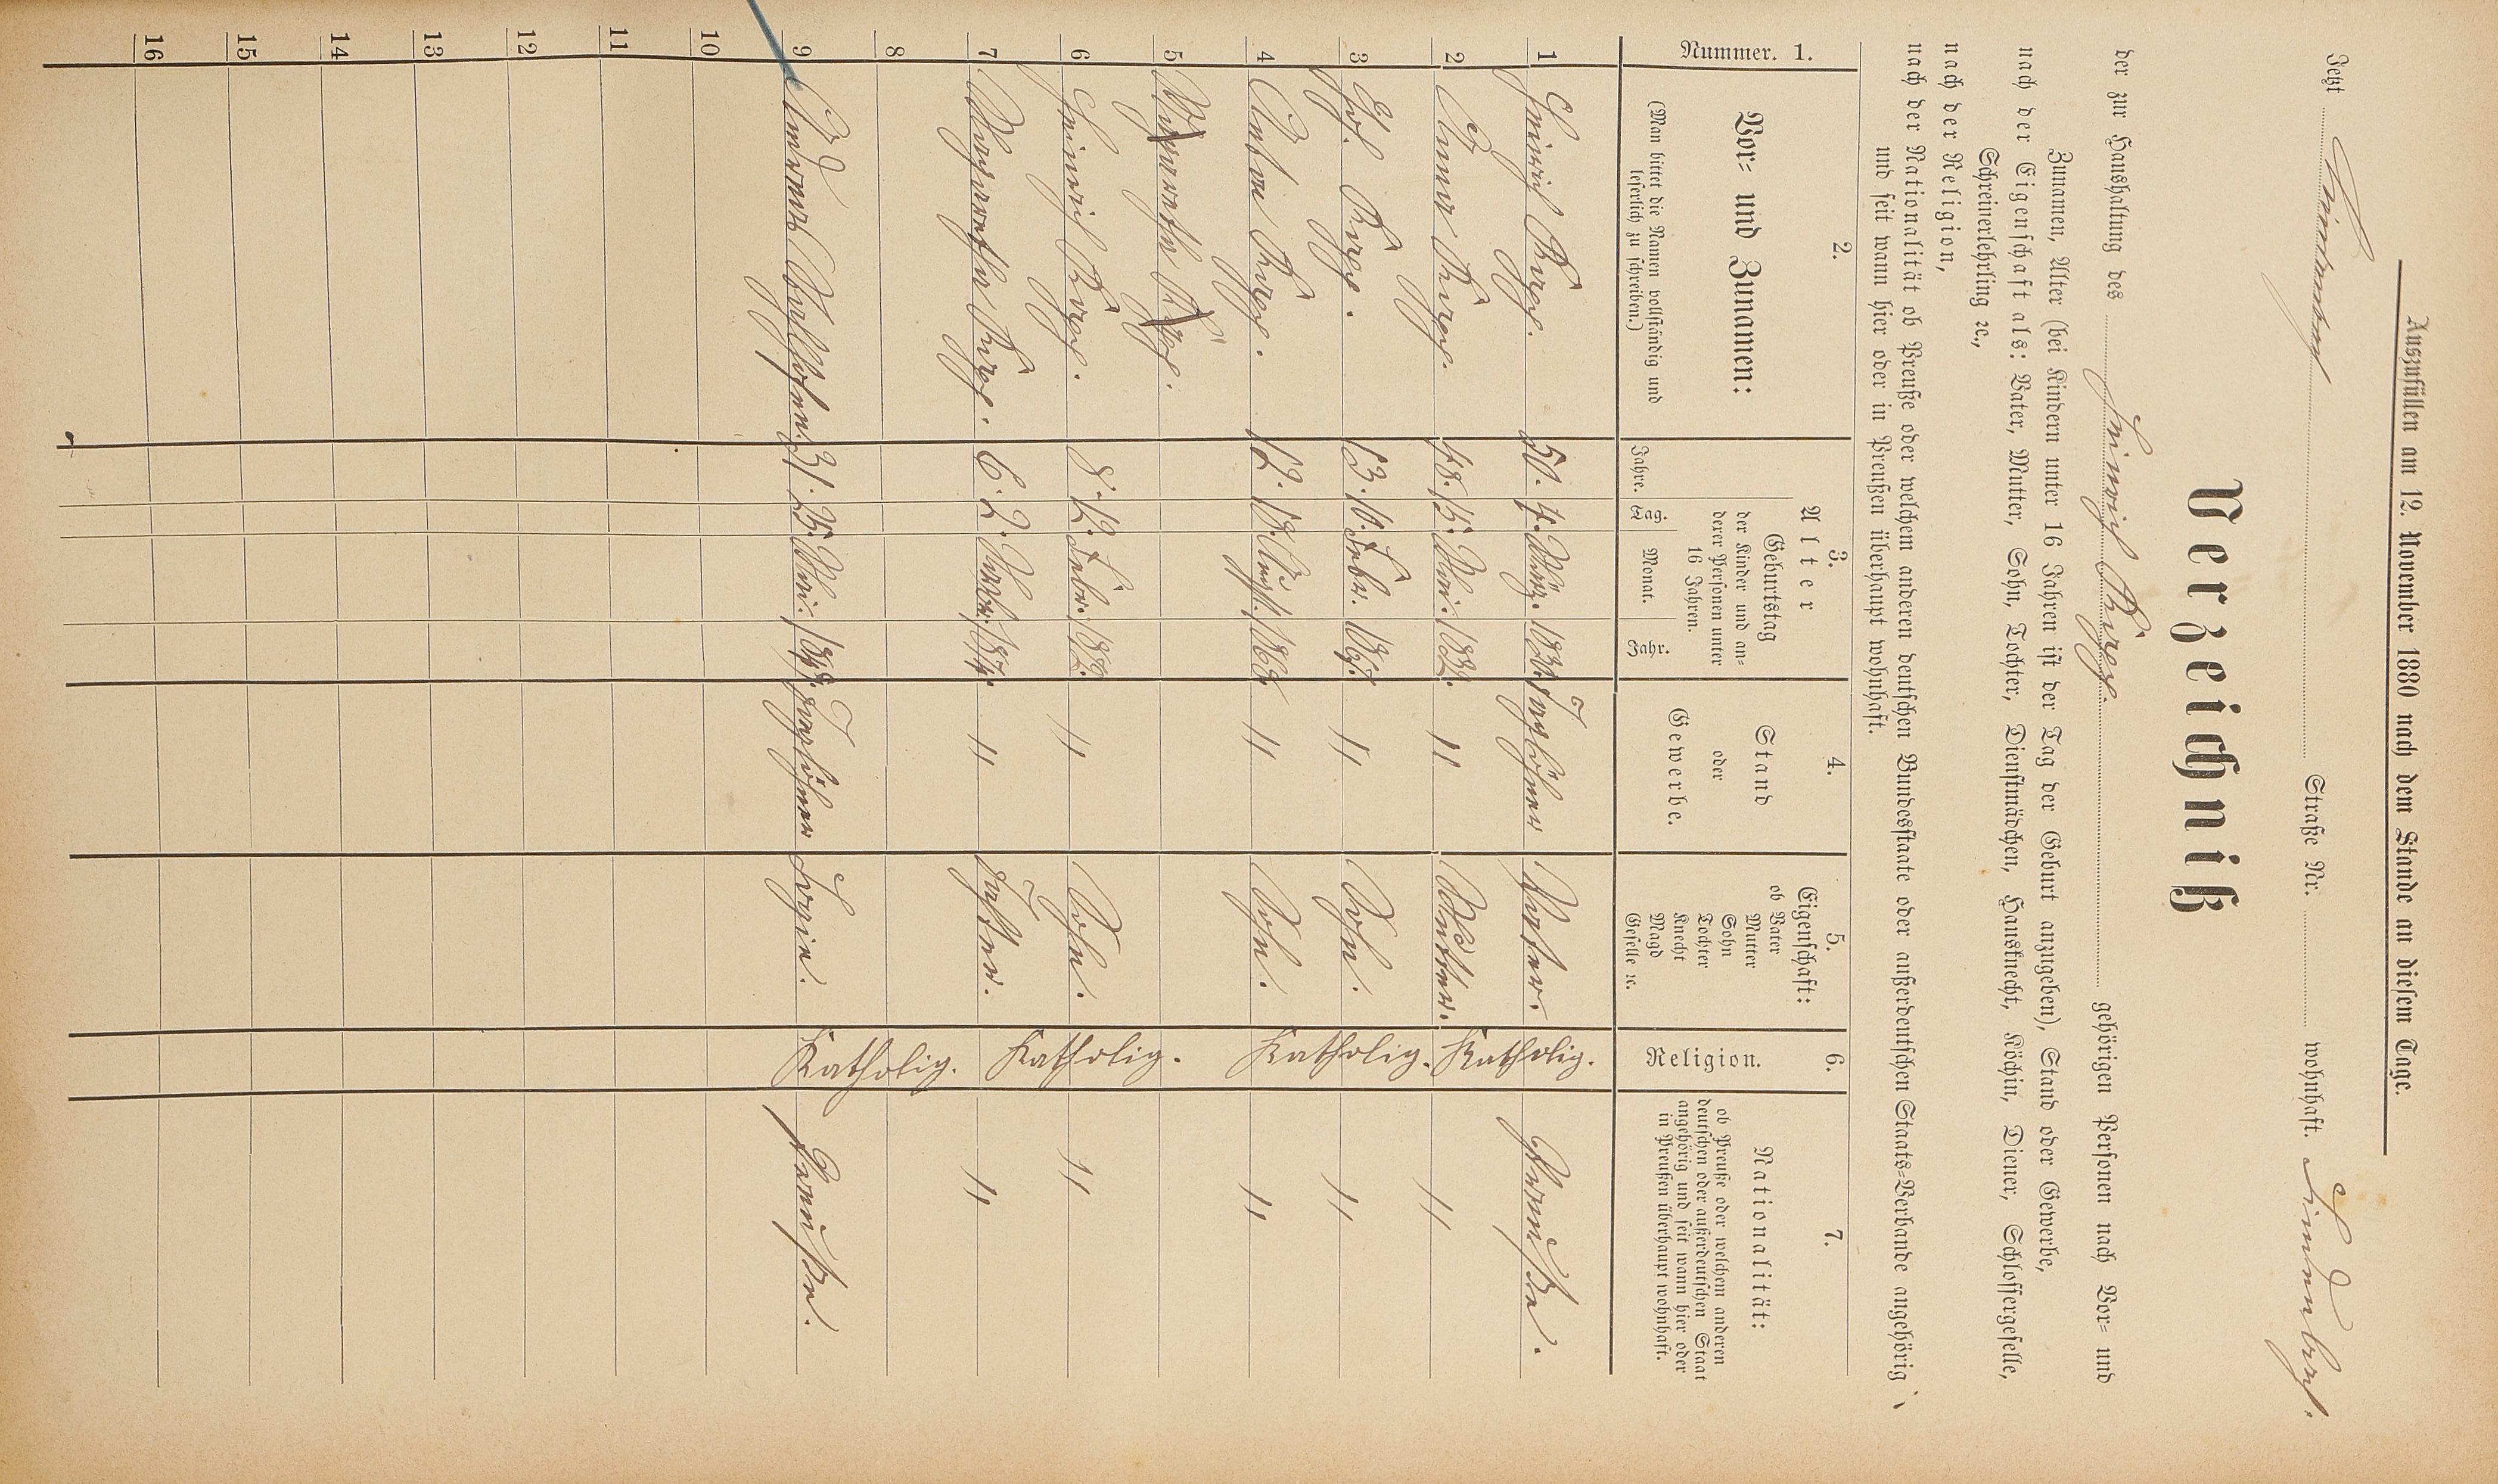 Auszufüllen am 12. November 1880 nach dem Stande an diesem Tage.
Jetzt Straße Nr. wohnhaft. Lindenthal.
Verzeichniß
der zur Haushaltung des Heinrich gehörigen Personen nach Vor= und
Zunamen, Alter (bei Kindern unter 16 Jahren ist der Tag der Geburt anzugeben), Stand oder Gewerbe,
nach der Eigenschaft als: Vater, Mutter, Sohn, Tochter, Dienstmädchen, Hausknecht, Köchin, Diener, Schlossergeselle,
Schreinerlehrling ꝛc.,
nach der Religion,
nach der Nationalität ob Preuße oder welchem anderen deutschen Bundesstaate oder außerdeutschen Staats=Verbande angehörig
und seit wann hier oder in Preußen überhaupt wohnhaft.
1. 2. 3. 4. 5. 6. 7.
Nummer.
Vor= und Zunamen:
(Man bittet die Namen vollständig und
leserlich zu schreiben.)
Alter
Geburtstag
der Kinder und an=
derer Personen unter
16 Jahren.
Jahre. Tag. Monat. Jahr.
Stand
oder
Gewerbe.
Eigenschaft:
ob Vater
Mutter
Sohn
Tochter
Knecht
Magd
Geselle ꝛc.
Religion.
Nationalität:
ob Preuße oder welchem anderen
deutschen oder außerdeutschen Staat
angehörig und seit wann hier oder
in Preußen überhaupt wohnhaft.
1 Heinrich 50. 4. März. 1830. Taglöhner Vater. Katholig. Preuße.
2 Anna 48. 15. Mai. 1832. " Mutter. Katholig. "
3 13. 10. Febr. 1867. " Sohn. Katholig. "
4 Anton 12. 18. Aug. 1868. " Sohn. "
5 Margaretha
6 Heinrich 8. 12. Febr. 1872. " Sohn. Katholig. "
7 Margaretha 6. 2. 1874. " Tochter. "
8
9 31. 25. Mai. 1849. Taglöhner Katholig. Preuße.
10
11
12
13
14
15
16